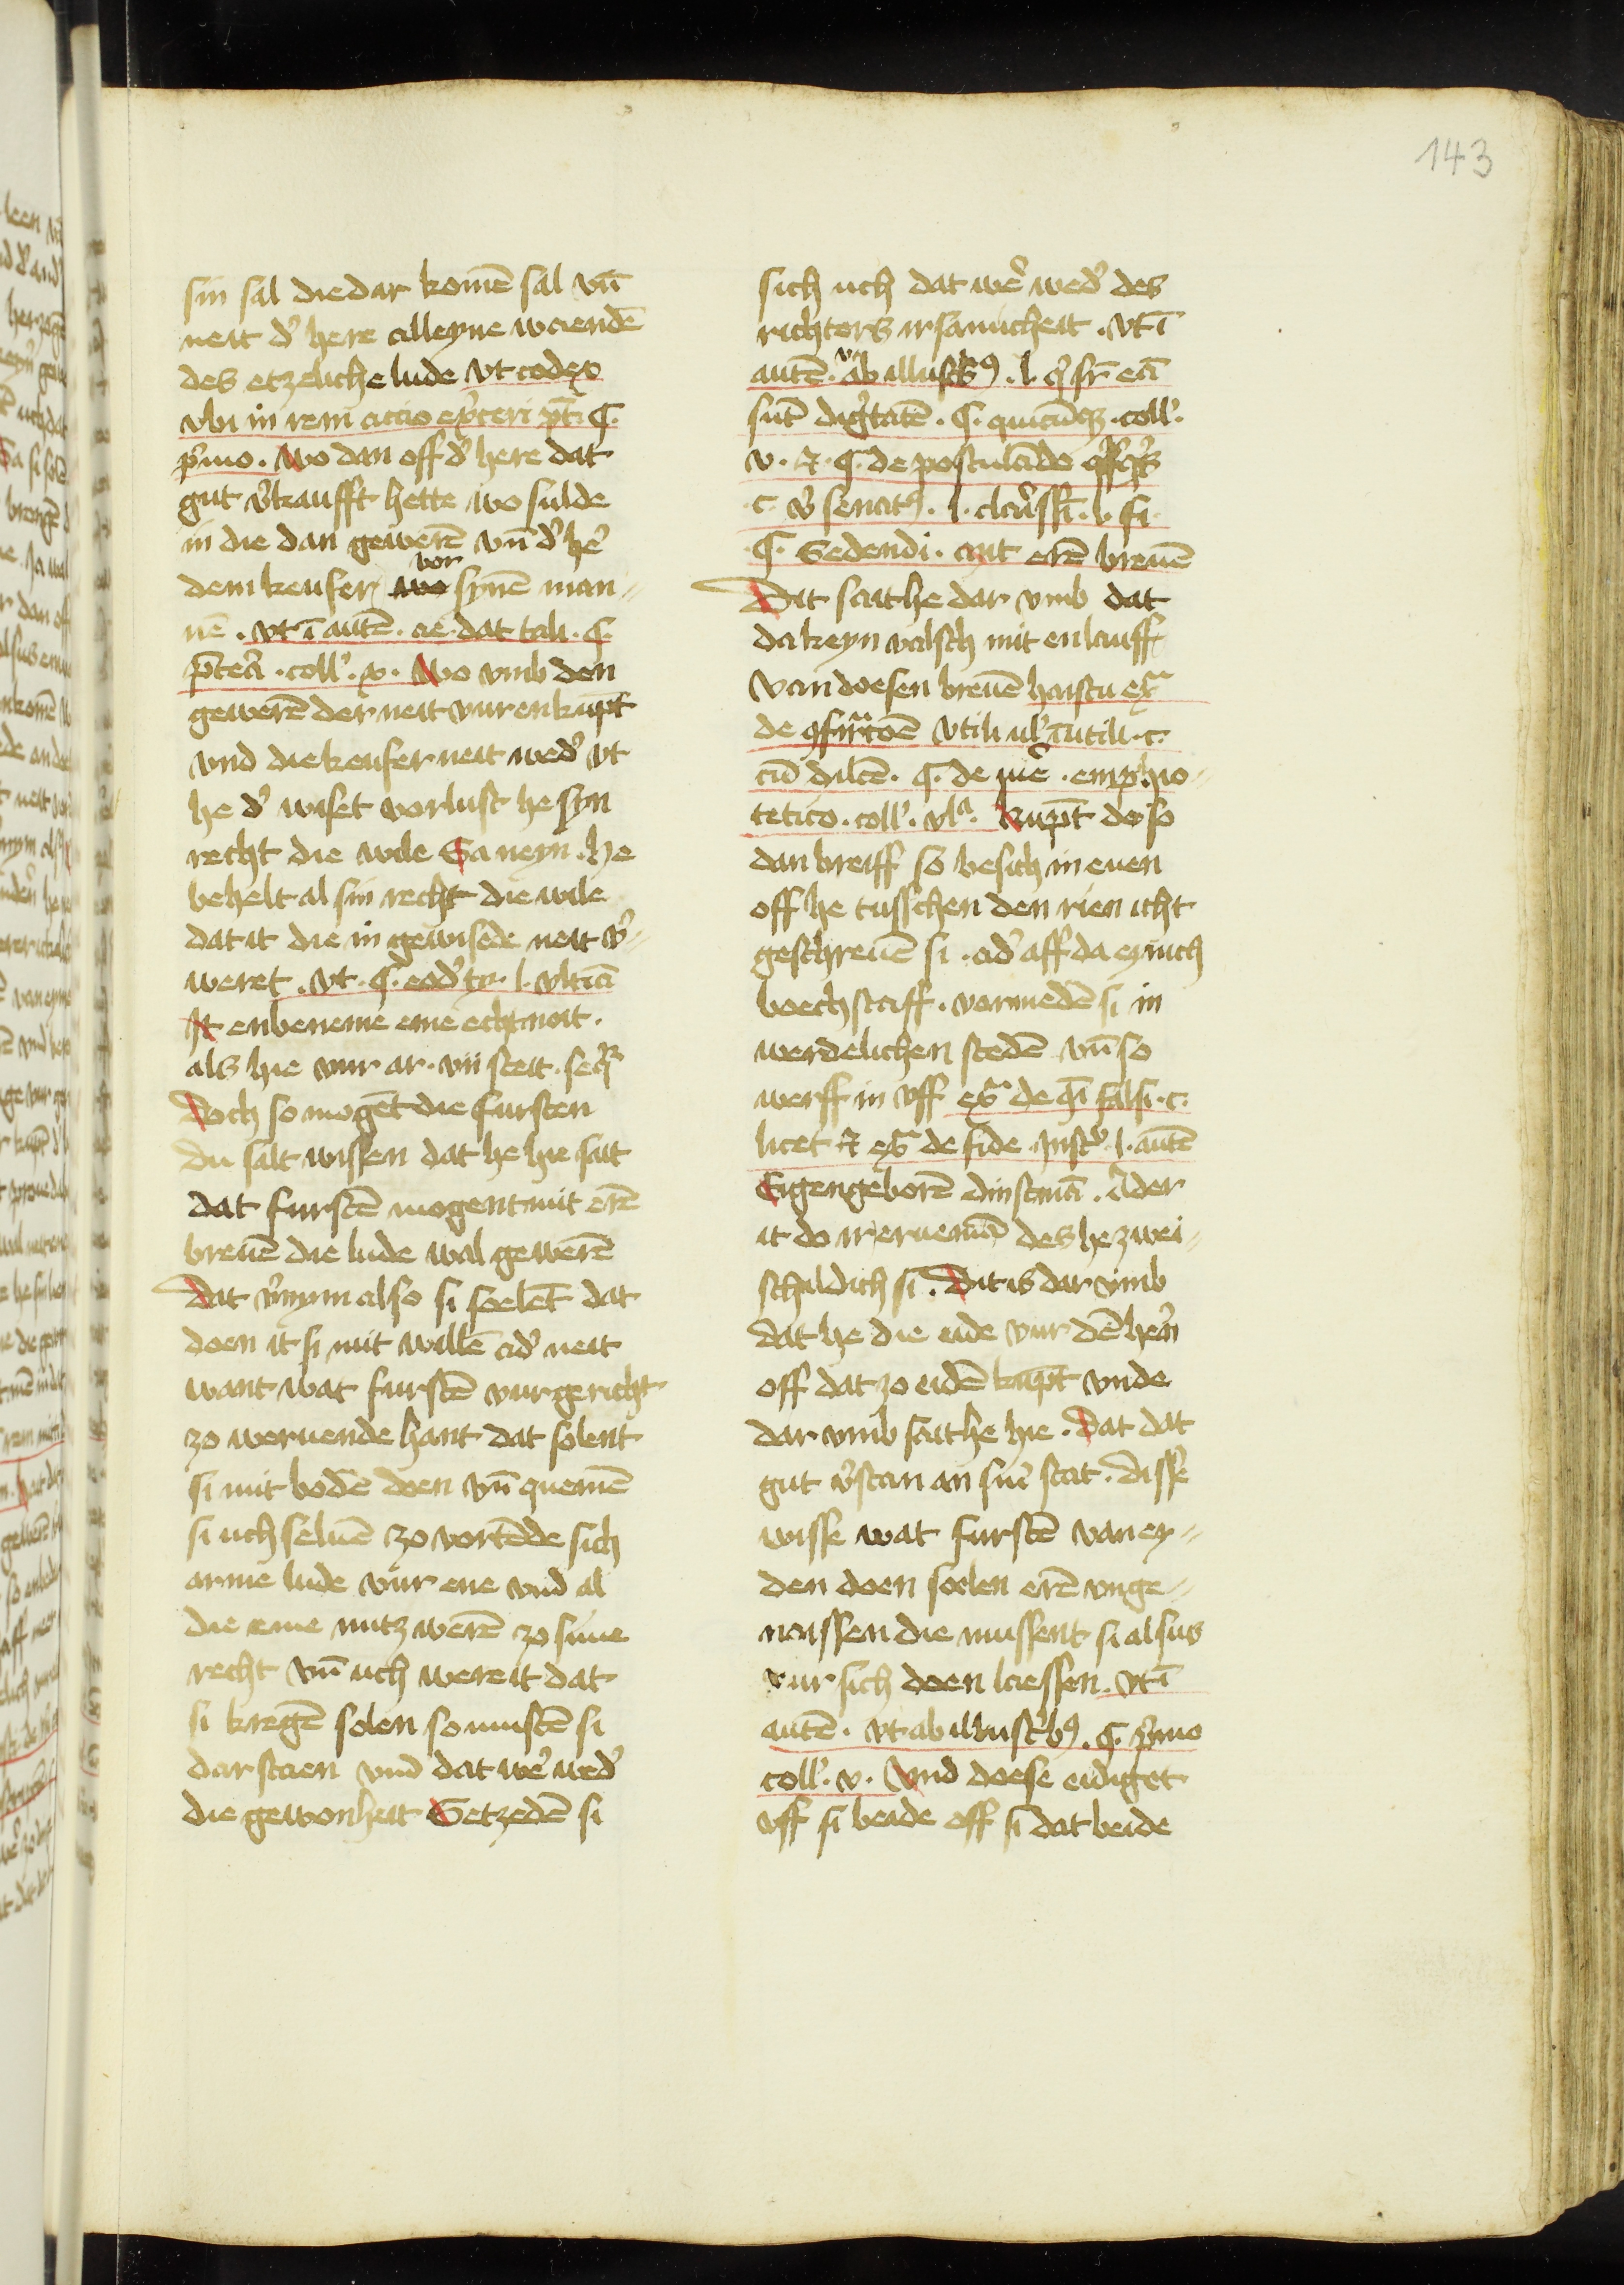 143
sin sal die dar komē sal vn̄
neit d' here alleyne waendē
des etzeliche lude vt codex
vbi in rem actio ex'ceri pt̄. C.
p'mo. Wo dan off d' here dat
gut v'kaufft hette wo sulde
in die dan gewerē vn̄ d' he'
dem keufer vor synē man-
nē. vt ī autē. ae. dat tali. C.
p̄tea. coll'. x. Wo vmb den
gewerē der neit vurenkūpt
vnd die keufer neit wed' vt
he d' wiset vorlust he syn
recht die wile Sa neyn. he
behelt al sin recht die wile
dat it die in gewisede neit v'-
weret. vt. C. eod' ty. l. vltīa
It enbeneme eme echt noit.
als hie vur ar. vii steit.
Doch so mogēt die fursten
du salt wissen dat he hie sait
dat furstē mogent mit erē
breuē die lude wal gewerē
Dat v'nym also si soelēt dat
doen it si mit willē ad' neit
want wat furstē vur gericht
zo weruende hant dat solent
si mit bodē doen vn̄ quemē
si uch seluē zo vortēde sich
arme lude vur ene vnd al
die eme nutz werē zo sime
recht vn̄ uch were it dat
si kregē solen so mustē si
dar staen vnd dat we' wed'
die gewonheit Setzedē si
sich uch dat we' wed' des
richters irsamicheit. vt ī
autē. vt ab illustb'9. l. q' sr̄ eā
sūt dig'tatē. C. quicūqz. coll'.
v. 7. C. de postulādo
c. v' senat9. l. clar'ssi. l. fi.
C. Sedendi. ant erē breuē
Dit sait he dar vmb dat
da keyn valsch mit enlauff
van doesen breuē haistu ex
de 9fir'toē vtili ul' īutili. c.
cū dilcē. C. de iue'. emphio-
tetico. coll'. vla. Kūpt dese
dan breiff so besich in euen
off he tusschen den rien icht
geschreuē si. ad' aff da eynich
boechstaff. vormedē si in
werdelichen stedē vn̄ so
werff in vff ex de c'ī falsi. c.
licet 7 ex de fide Inst'. l. autē
Eigengeborē dinstmā. Ader
it do ir eruemā des he zwei-
schaldich si. Dit is dar vmb
dat he die eide vur dē hern
off dat zo eidē kūpt vnde
dar vmb sait he hie. Dat dat
gut v'stan an sin' stat. Disse
wisse wat furstē van ey-
den doen soelen erē vnge-
naissen die mussent si alsus
vur sich doen laessen. vt ī
autē. vt ab illust'b9. C. p'mo
coll'. v. Vnd doese eidiget
vff si beide off si dat beide